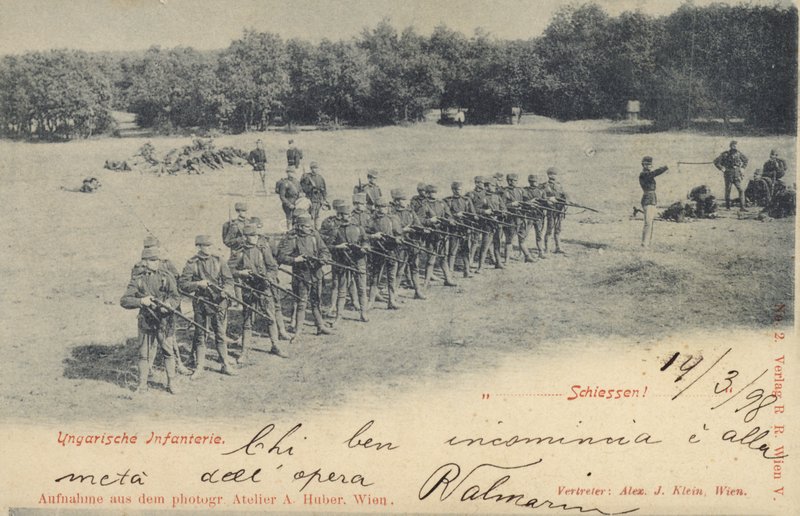 „ ............ Schiessen! ............ “
14/3/98
Ungarische Infanterie.
Chi ben incomincia è alla
metà dell'opera
Aufnahme aus dem photogr. Atelier A. Huber, Wien.
Vertreter: Alex. J. Klein, Wien.
No. 2. Verlag R. R. Wien V.